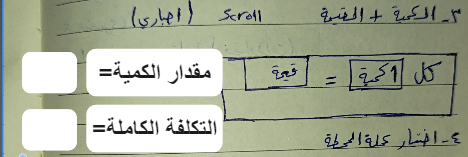 ٣ـ الكمية + القيمة Scroll (اجباري)
كل 1 كمية = قيمة
مقدار الكمية=
التكلفة الكاملة=
٤ـ اختار عملة المحطة